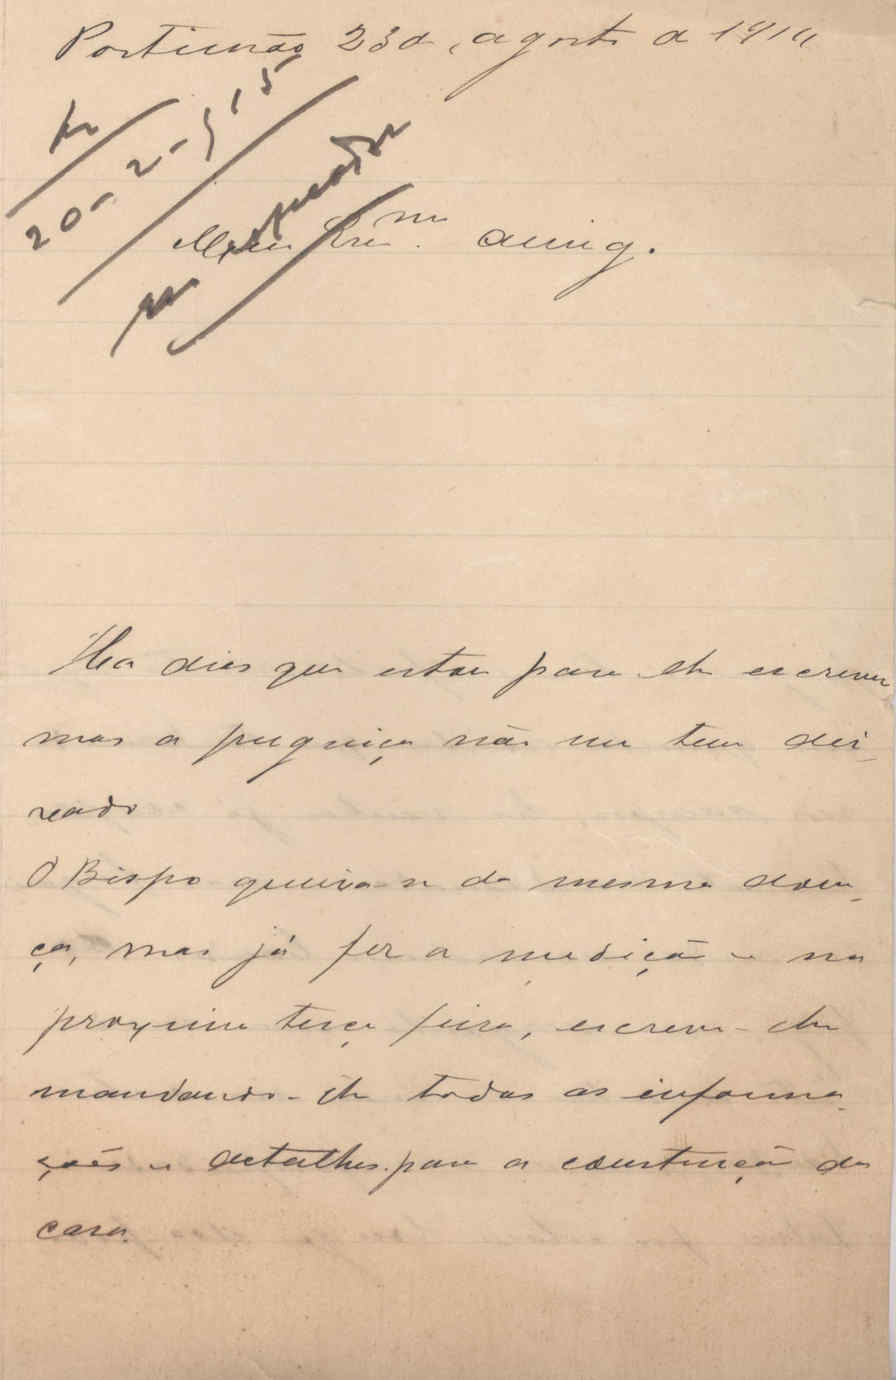 Portimão 23 d, agosto d 1914
R
20-2-915
Meu Exmo. amigo.
Ha dias que estou para lhe escrever
mas a preguiça não me tem dei-
xado
O Bispo queixa-se da mesma doen-
ça, mas já fez a medição e na
proxima terça feira, escreve-lhe
mandando-lhe todas as informa-
ções e detalhes para a construção da
casa.